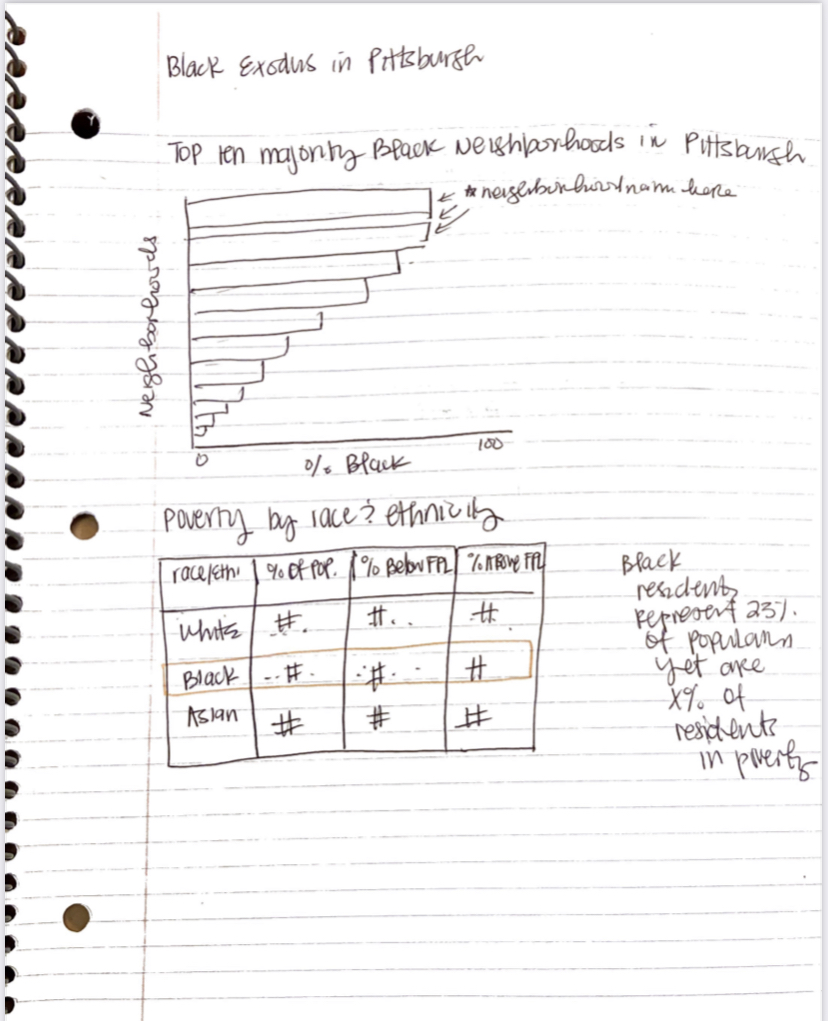 Black Exodus in Pittsburgh
Top ten majority Black Neighborhoods in Pittsburgh
* neighborhood name here
Neighborhoods
0
100
% Black
Poverty by race & ethnicity
race/ethni
% of Pop.
% Below FPL
% Above FPL
White
#
#
#
Black
#
#
#
Asian
#
#
#
Black
residents
represent 23%
of population
yet are
X% of
residents
in poverty